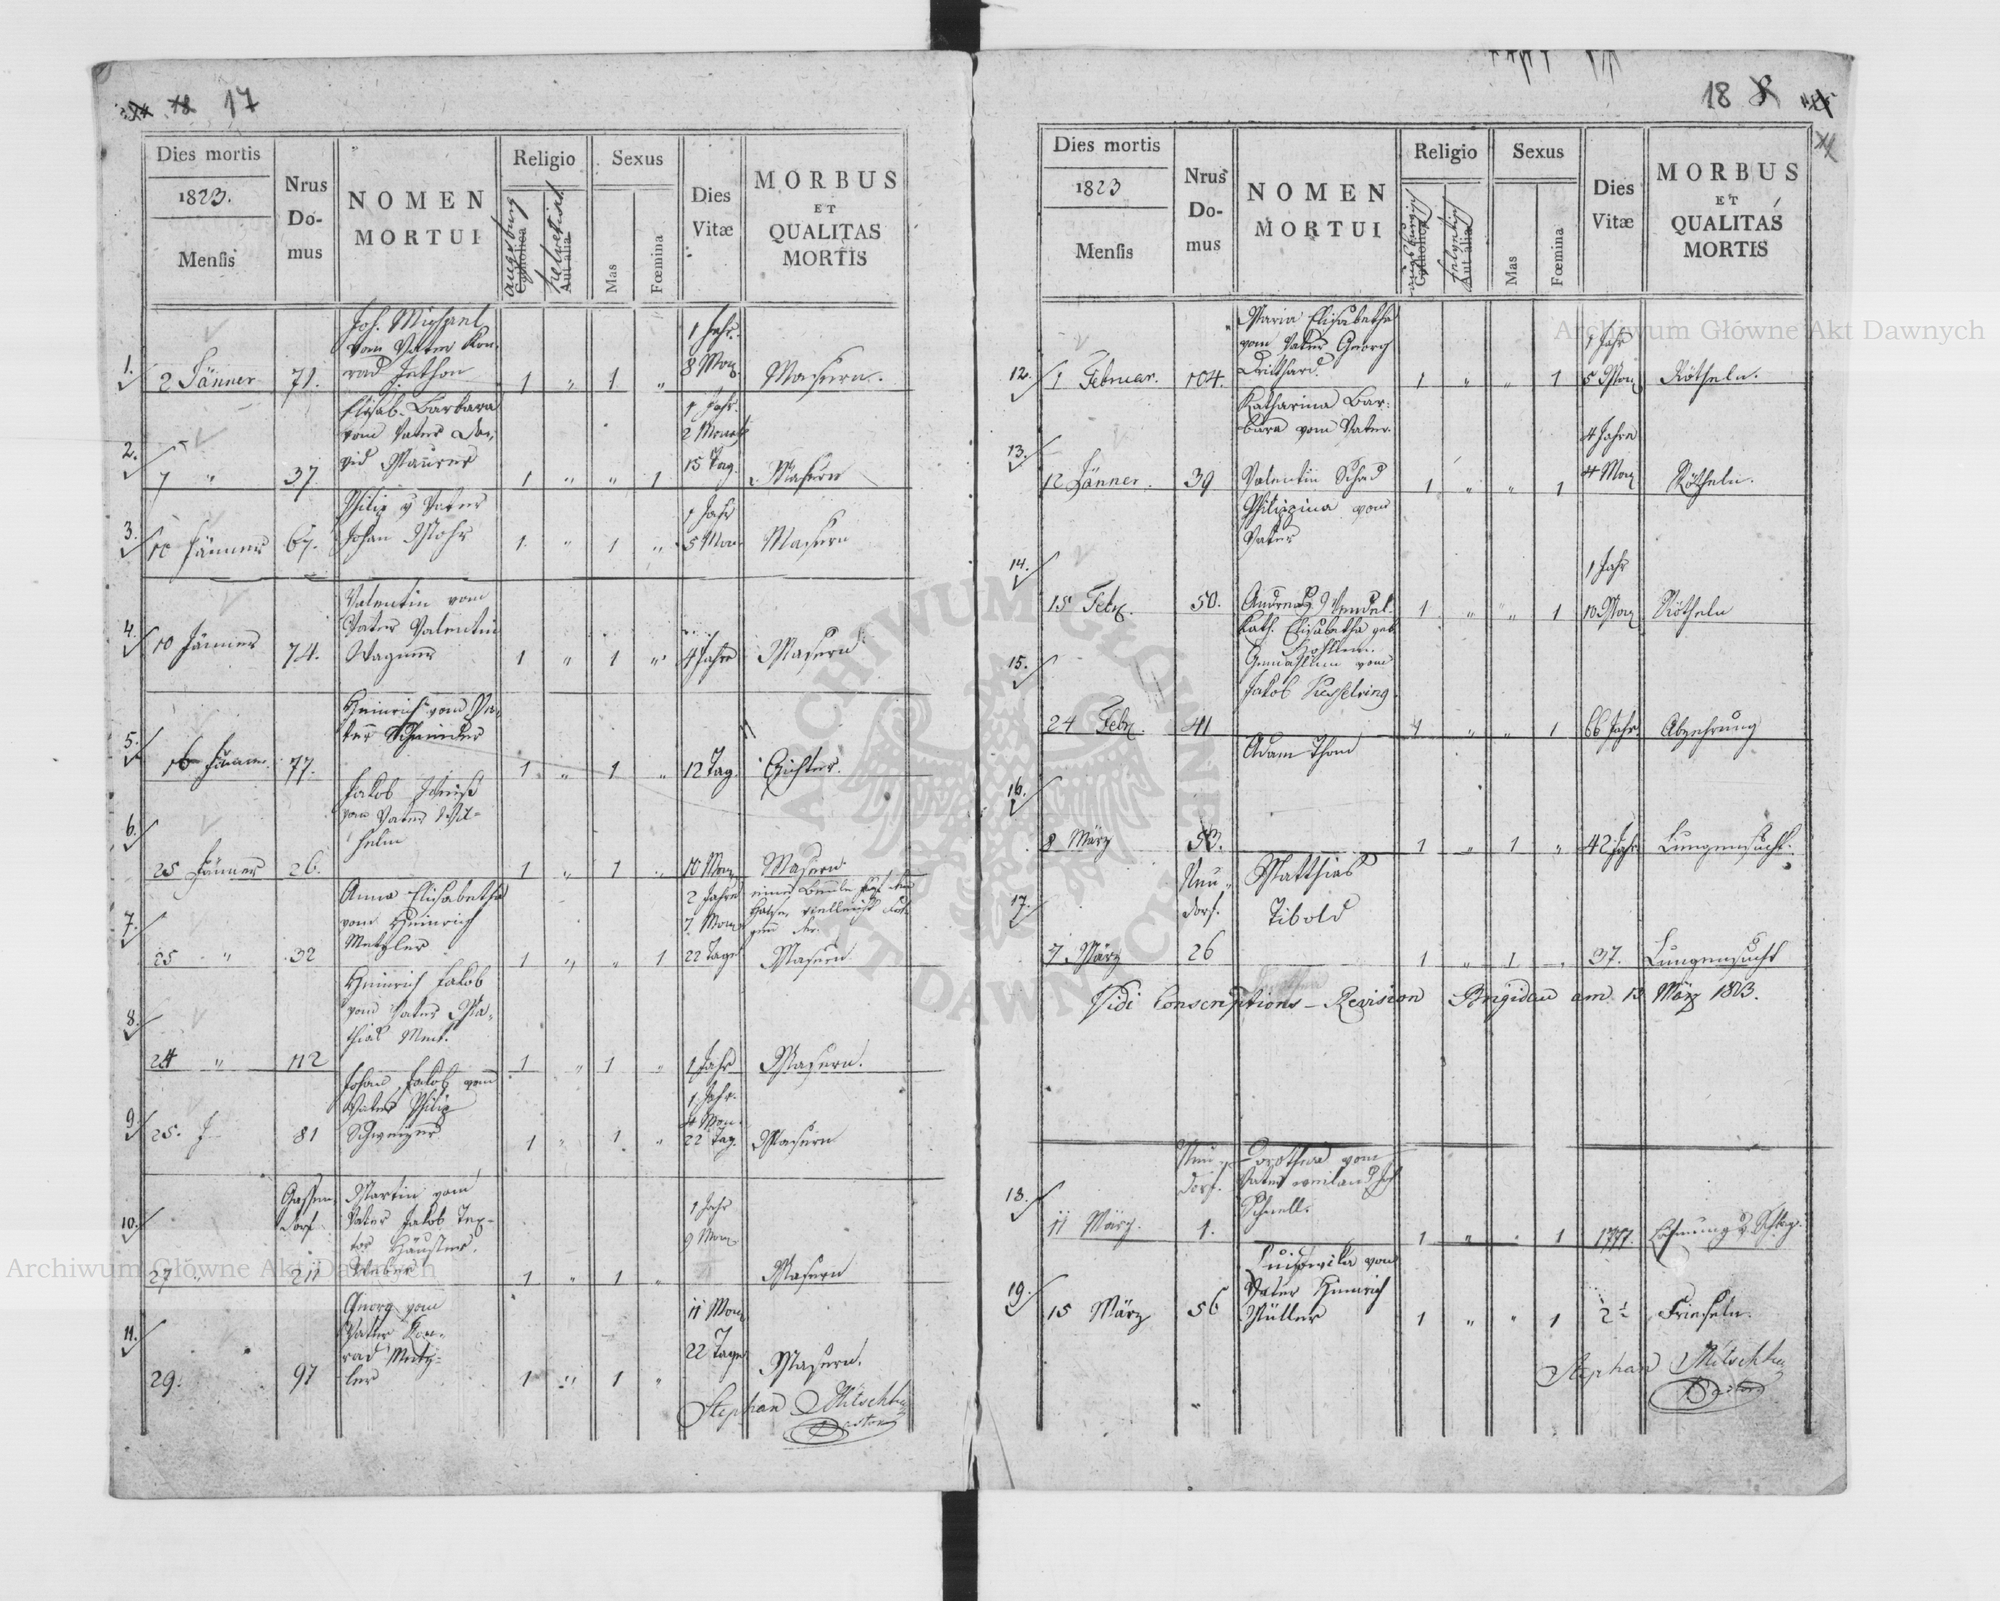 17
Dies mortis
1823.
Mensis
Nrus
Do-
mus
NOMEN
MORTUI
Religio
augsburg
Catholica
helvetisch
Aut alia
Sexus
Mas
Fœmina
Dies
Vitæ
MORBUS
ET
QUALITAS
MORTIS
Joh. Michael
vom Vater Kon-
rad Jathon
1 Jahr.
8 Mon.
1. 2 Jänner 71. 1 " 1 " Masern.
Elisab. Barbara
vom Vater Da-
vid Maurer
1 Jahr.
2 Monath
15 Tag.
2. 7 " 37. 1 " " 1 Masern
Philip v Vater
Johan Mohr
1 Jahr
5 Mon.
3. 10 Jänner 67. 1. " 1 " Masern
Valentin vom
Vater Valentin
Wagner
4. 10 Jänner 74. 1 " 1 " 4 Jahre Masern
Heinrich vom Va-
ter Schneider
5. 16 Jänner. 77. 1 " 1 " 12 Tag. Gichter.
Jakob
vom Vater Wil-
helm
6. 25 Jänner 26. 1 " 1 " 10 Mon. Masern
Anna Elisabetha
vom Heinrich
Metzler
2 Jahre
7 Mon
22 Tage
7. 25 " 32 1 " " 1 Masern
Heinrich Jakob
vom Vater Ma-
thias Ment.
8. 24 " 112 1 " 1 " 1 Jahr Masern.
Johan Jakob vom
Vater Philip
Schweizer
1 Jahr.
4 Mon.
22 Tag.
9. 25. J 81 1 " 1 " Masern
Gassen
dorf.
Martin vom
Vater Jakob Tex-
tor Häusler.
Weber
1 Jahr
9 Mon
10. 27 " 211 1 " 1 " Masern
Georg vom
Vater Kon-
rad Metz-
ler
11 Mon
22 Tage
11. 29. 97 1 " 1 " Masern.
Stephan Mitschke
Pastor
18
Dies mortis
1823
Mensis
Nrus
Do-
mus
NOMEN
MORTUI
Religio
Catholica
Aut alia
Sexus
Mas
Fœmina
Dies
Vitæ
MORBUS
ET
QUALITAS
MORTIS
Maria Elisabetha
vom Vater Georg
1 Jahr
5 Mon
12. 1 Februar. 104. 1 " " 1 Rötheln.
Katharina Bar-
bara vom Vater
Valentin Schad
4 Jahre
4 Mon
13. 12 Jänner. 39 1 " " 1 Rötheln.
Philippina vom
Vater
Andreas Wendel.
1 Jahr
10 Mon
14. 15 Feb. 50. 1 " " 1 Rötheln
Kath. Elisabetha geb.
Gemahlin vom
Jakob Kesselring.
15. 24 Feb. 41 1 " " 1 66 Jahr Abzehrung
Adam Thom
16. 8 März 53. 1 " 1 " 42 Jahr Lungensucht.
Neu
dorf.
26
Matthias
Tibold
17. 7 März 1 " 1 " 37. Lungensucht
Vidi Conscriptions-Revision Brigidau am 13 März 1823.
Neu
dorf.
Dorothea vom
Vater weiland Joh
Schnell.
18. 11 März. 1. 1 " " 1
Ludowika vom
Vater Heinrich
Müller
19. 15 März 56 1 " " 1 2½ Frieseln.
Stephan Mitschke
Pastor
Archiwum Główne Akt Dawnych
Archiwum Główne Akt Dawnych
ARCHIWUM GŁÓWNE AKT DAWNYCH